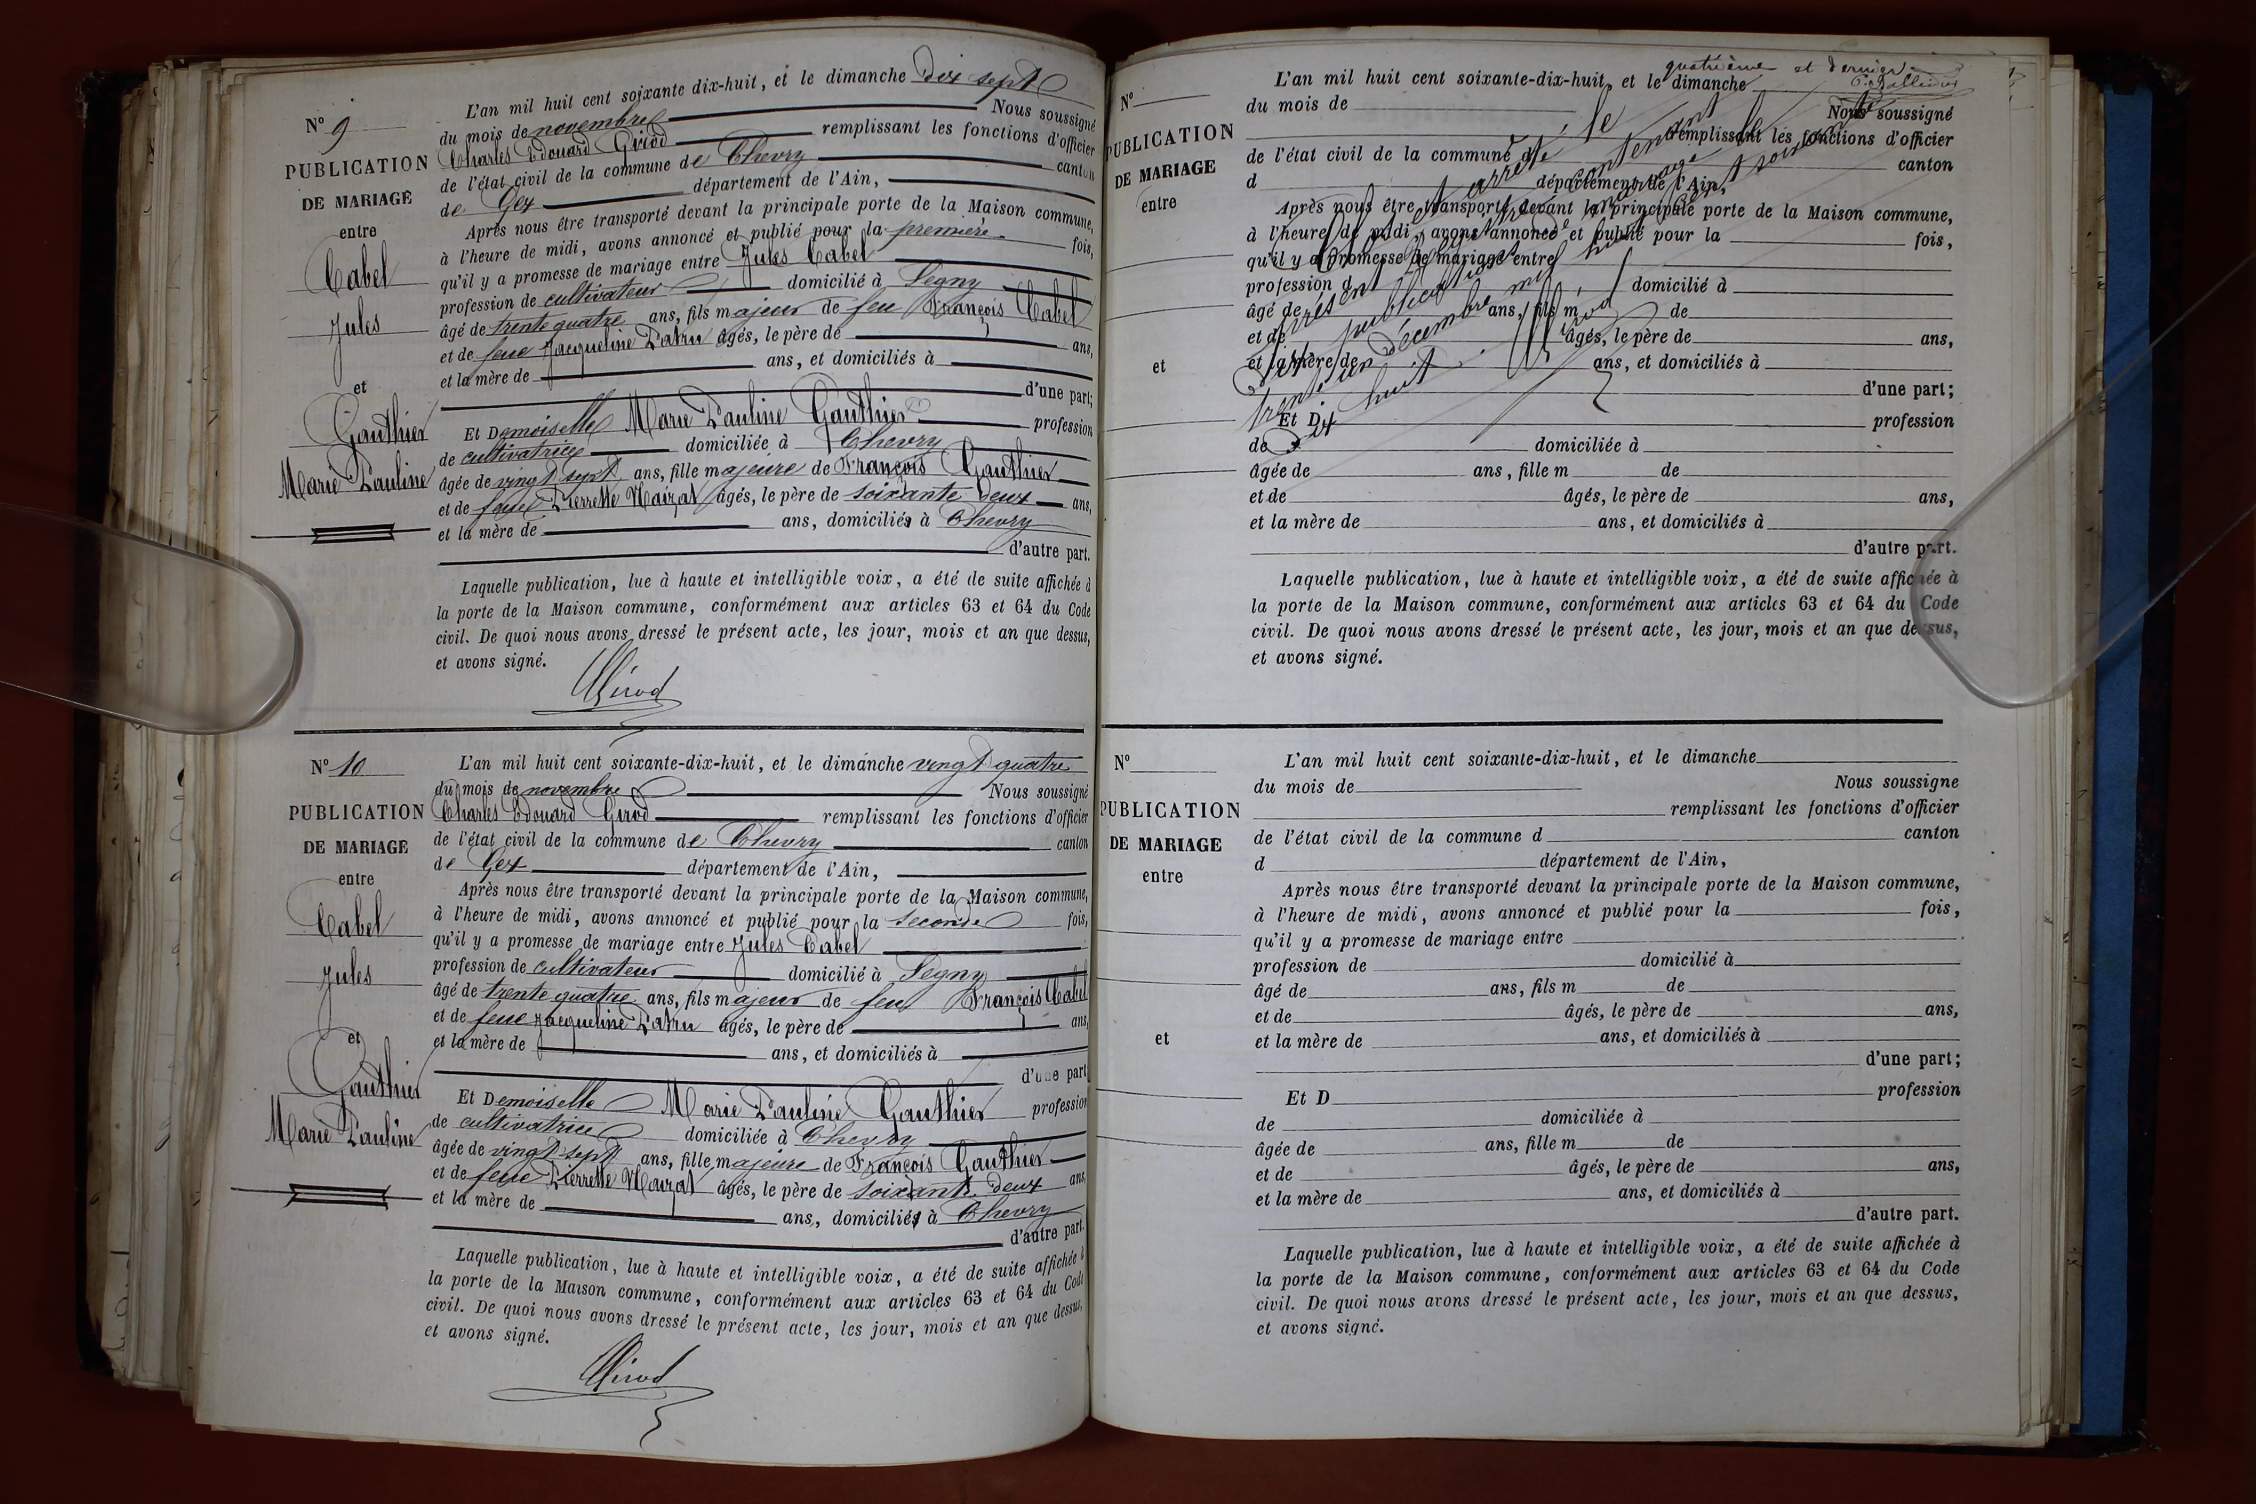 N° 9
PUBLICATION
DE MARIAGE
entre
Cabel
Jules
et
Gauthier
Marie Pauline
L'an mil huit cent soixante dix-huit, et le dimanche dix sept
du mois de novembre Nous soussigné
Charles Edouard Girod remplissant les fonctions d'officier
de l'état civil de la commune de Chevry canton
de Gex département de l'Ain,
Après nous être transporté devant la principale porte de la Maison commune,
à l'heure de midi, avons annoncé et publié pour la première fois,
qu'il y a promesse de mariage entre Jules Cabel
profession de cultivateur domicilié à Segny
âgé de trente quatre ans, fils majeur de feu François Cabel
et de feue Jacqueline Patru âgés, le père de ans,
et la mère de ans, et domiciliés à
d'une part;
Et Demoiselle Marie Pauline Gauthier profession
de cultivatrice domiciliée à Chevry
âgée de vingt sept ans, fille majeure de François Gauthier
et de feue Pierrette âgés, le père de soixante deux ans,
et la mère de ans, domiciliés à Chevry
d'autre part.
Laquelle publication, lue à haute et intelligible voix, a été de suite affichée à
la porte de la Maison commune, conformément aux articles 63 et 64 du Code
civil. De quoi nous avons dressé le présent acte, les jour, mois et an que dessus,
et avons signé.
Girod
N° 10
PUBLICATION
DE MARIAGE
entre
Cabel
Jules
et
Gauthier
Marie Pauline
L'an mil huit cent soixante-dix-huit, et le dimanche vingt quatre
du mois de novembre Nous soussigné
Charles Edouard Girod remplissant les fonctions d'officier
de l'état civil de la commune de Chevry canton
de Gex département de l'Ain,
Après nous être transporté devant la principale porte de la Maison commune,
à l'heure de midi, avons annoncé et publié pour la seconde fois,
qu'il y a promesse de mariage entre Jules Cabel
profession de cultivateur domicilié à Segny
âgé de trente quatre ans, fils majeur de feu François Cabel
et de feue Jacqueline Patru âgés, le père de ans,
et la mère de ans, et domiciliés à
d'une part
Et Demoiselle Marie Pauline Gauthier profession
de cultivatrice domiciliée à Chevry
âgée de vingt sept ans, fille majeure de François Gauthier
et de feue Pierrette âgés, le père de soixante deux ans,
et la mère de ans, domiciliés à Chevry
d'autre part.
Laquelle publication, lue à haute et intelligible voix, a été de suite affichée à
la porte de la Maison commune, conformément aux articles 63 et 64 du Code
civil. De quoi nous avons dressé le présent acte, les jour, mois et an que dessus,
et avons signé.
Girod
quatrième et dernier
N°
PUBLICATION
DE MARIAGE
entre
et
L'an mil huit cent soixante-dix-huit, et le dimanche
du mois de Nous soussigné
remplissant les fonctions d'officier
de l'état civil de la commune d canton
d département de l'Ain,
Après nous être transporté devant la principale porte de la Maison commune,
à l'heure de midi, avons annoncé et publié pour la fois,
qu'il y a promesse de mariage entre
profession d domicilié à
âgé de ans, fils m de
et de âgés, le père de ans,
et la mère de ans, et domiciliés à
d'une part;
Et D profession
de domiciliée à
âgée de ans, fille m de
et de âgés, le père de ans,
et la mère de ans, et domiciliés à
d'autre part.
Laquelle publication, lue à haute et intelligible voix, a été de suite affichée à
la porte de la Maison commune, conformément aux articles 63 et 64 du Code
civil. De quoi nous avons dressé le présent acte, les jour, mois et an que dessus,
et avons signé.
et arrêté, le
présent contenant
dix publications de mariage le
trente un décembre mil huit cent soixante
dix huit.
Girod
N°
PUBLICATION
DE MARIAGE
entre
et
L'an mil huit cent soixante-dix-huit, et le dimanche
du mois de Nous soussigne
remplissant les fonctions d'officier
de l'état civil de la commune d canton
d département de l'Ain,
Après nous être transporté devant la principale porte de la Maison commune,
à l'heure de midi, avons annoncé et publié pour la fois,
qu'il y a promesse de mariage entre
profession de domicilié à
âgé de ans, fils m de
et de âgés, le père de ans,
et la mère de ans, et domiciliés à
d'une part;
Et D profession
de domiciliée à
âgée de ans, fille m de
et de âgés, le père de ans,
et la mère de ans, et domiciliés à
d'autre part.
Laquelle publication, lue à haute et intelligible voix, a été de suite affichée à
la porte de la Maison commune, conformément aux articles 63 et 64 du Code
civil. De quoi nous avons dressé le présent acte, les jour, mois et an que dessus,
et avons signé.